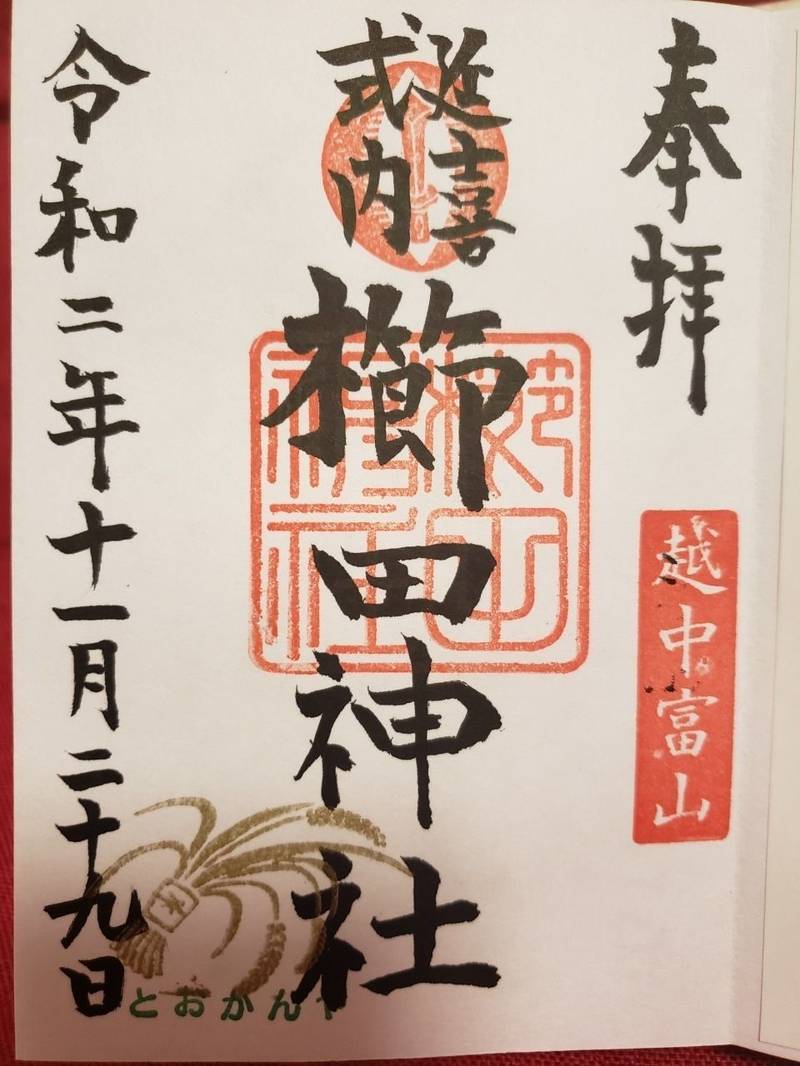 奉拝
越中富山
延喜
式内
櫛田神社
令和二年十一月二十九日
とおかんや